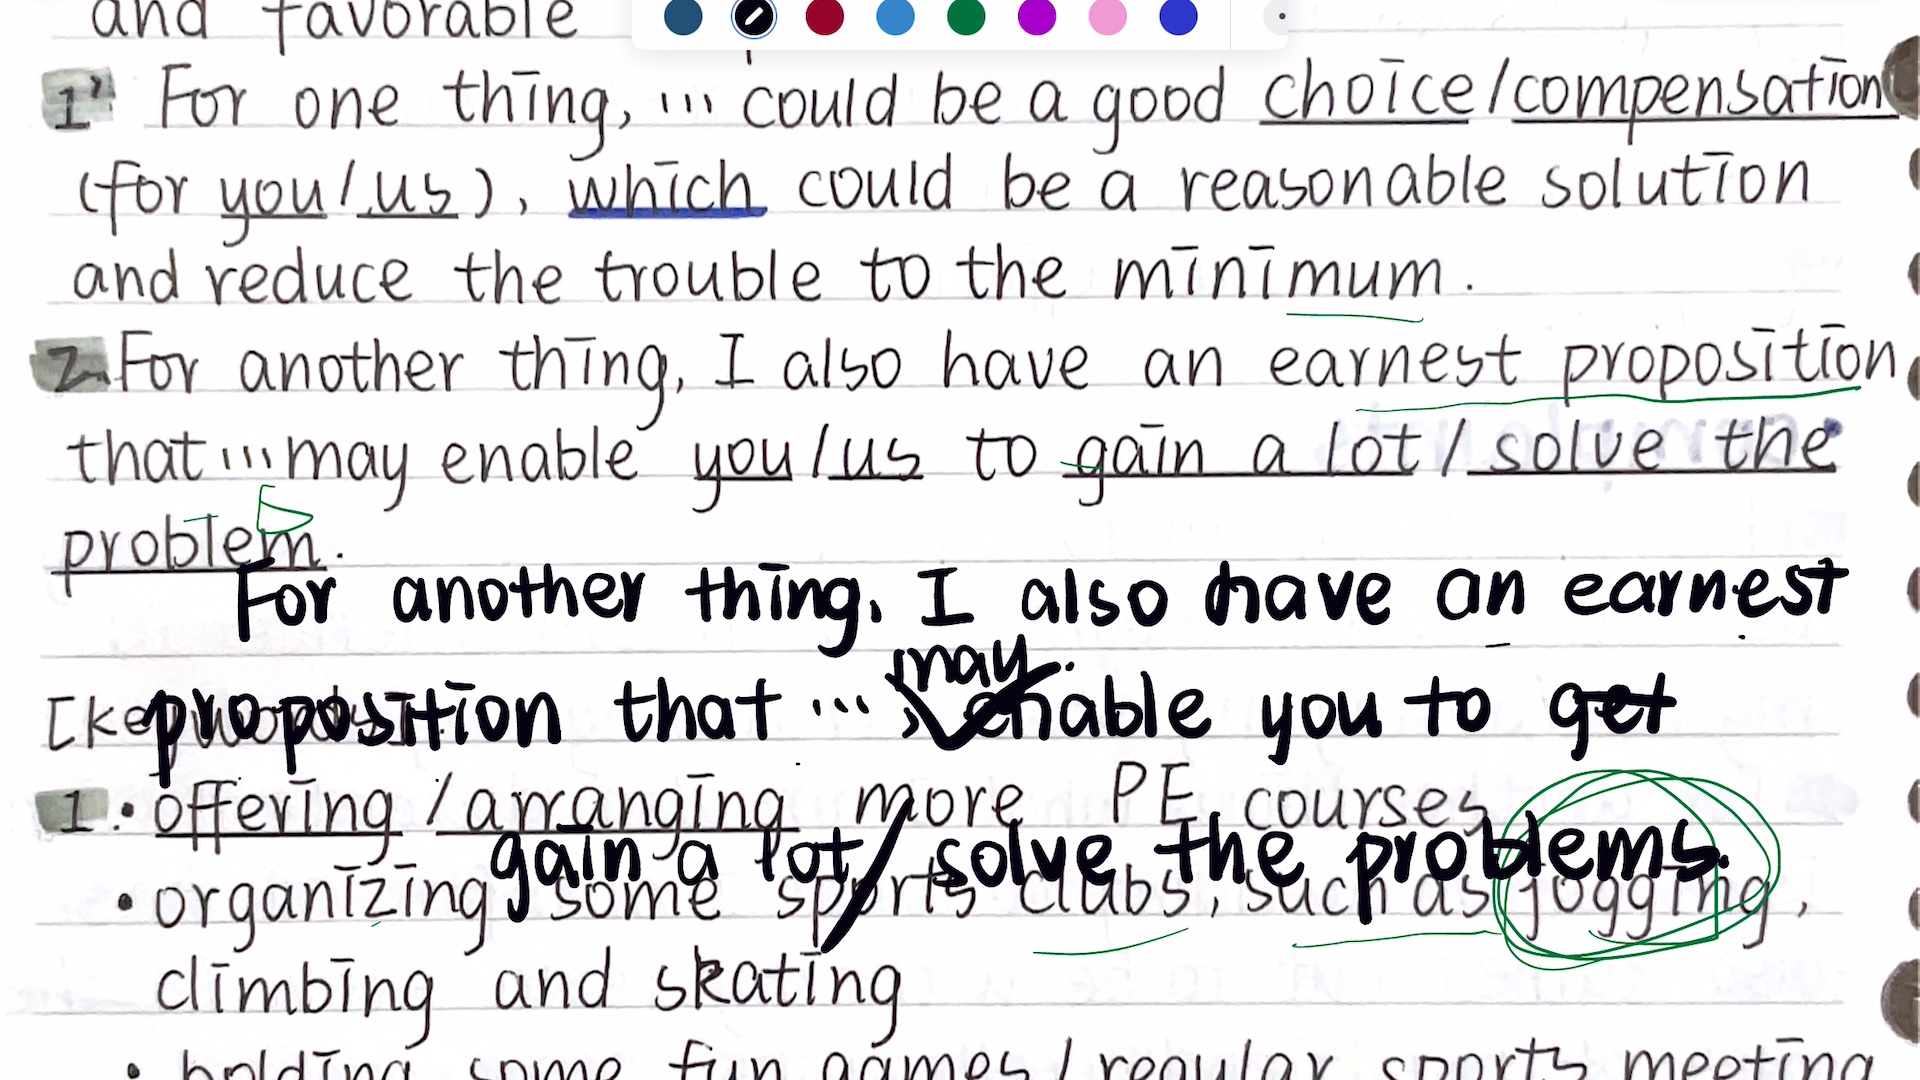 and favorable
1' For one thing, ... could be a good choice/compensation
(for you/us), which could be a reasonable solution
and reduce the trouble to the minimum.
2. For another thing, I also have an earnest proposition
that ... may enable you/us to gain a lot/solve the
problem.
For another thing, I also have an earnest
may
proposition that ... enable you to get
1. • offering/arranging more PE courses
gain a lot/solve the problems.
• organizing some sports clubs, such as jogging,
climbing and skating
• holding some fun games/regular sports meeting